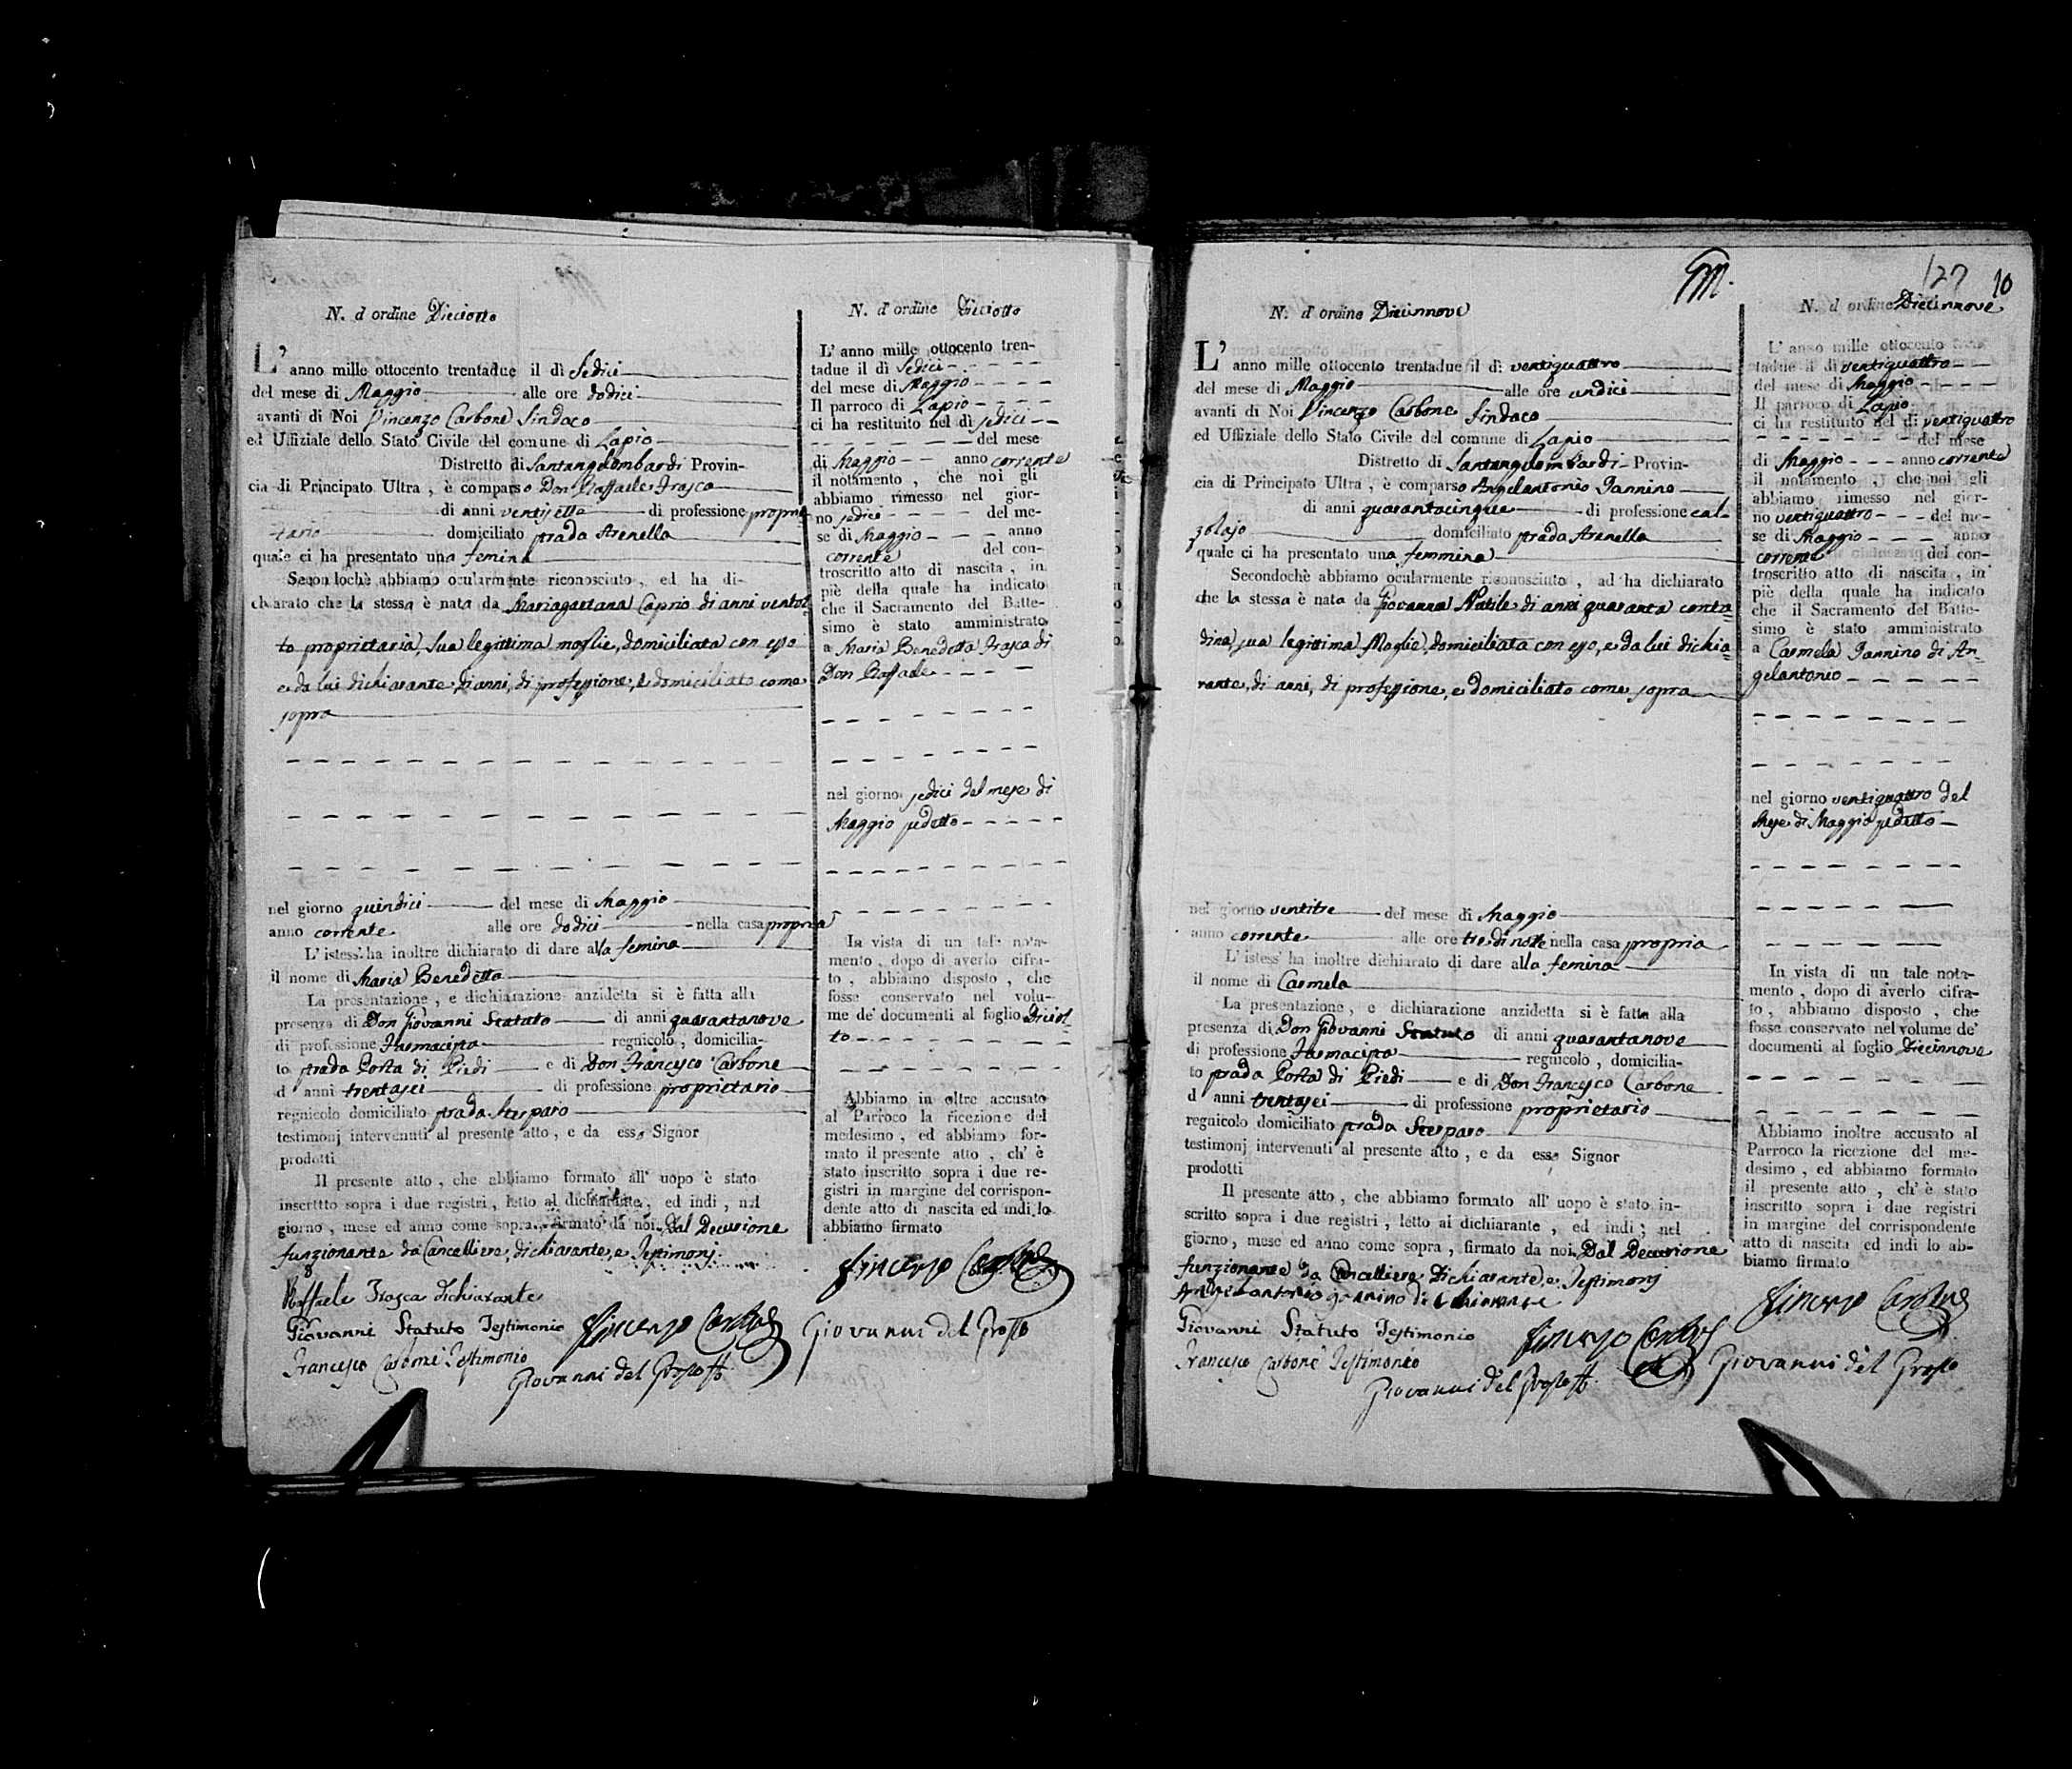 N. d'ordine Dieciotto
L'anno mille ottocento trentadue il dì Sedici
del mese di Maggio alle ore dodici
avanti di Noi Vincenzo Carbone Sindaco
ed Uffiziale dello Stato Civile del comune di Lapio
Distretto di Santangelombardi Provin-
cia di Principato Ultra, è comparso Don Raffaele Frasca
di anni ventisette di professione proprie
tario domiciliato strada Arenella
quale ci ha presentato una femina
Secondochè abbiamo ocularmente riconosciuto, ed ha di-
chiarato che la stessa è nata da Mariagaetana Caprio di anni ventot
to proprietaria, sua legittima moglie, domiciliata con esso
e da lui dichiarante di anni, di professione, e domiciliato come
sopra
nel giorno quindici del mese di Maggio
anno corrente alle ore dodici nella casa propria
L'istess' ha inoltre dichiarato di dare alla femina
il nome di Maria Benedetta
La presentazione, e dichiarazione anzidetta si è fatta alla
presenza di Don Giovanni Statuto di anni quarantanove
di professione Farmacista regnicolo, domicilia-
to strada Porta di Piedi e di Don Francesco Carbone
d' anni trentasei di professione proprietario
regnicolo domiciliato strada Sterparo
testimonj intervenuti al presente atto, e da essi Signor
prodotti
Il presente atto, che abbiamo formato all' uopo è stato
inscritto sopra i due registri, letto al dichiarante, ed indi, nel
giorno, mese ed anno come sopra, firmato da noi, Dal Decurione
funzionante da Cancelliere, dichiarante, e Testimonj
Raffaele Frasca dichiarante
Giovanni Statuto Testimonio
Francesco Carbone Testimonio
Vincenzo Carbone
Giovanni del Grosso
N. d'ordine Dieciotto
L'anno mille ottocento tren-
tadue il dì Sedici
del mese di Maggio
Il parroco di Lapio
ci ha restituito nel dì sedici
del mese
di Maggio anno corrente
il notamento, che noi gli
abbiamo rimesso nel gior-
no sedici del me-
se di Maggio anno
corrente del con-
troscritto atto di nascita, in
piè della quale ha indicato
che il Sacramento del Batte-
simo è stato amministrato
a Maria Benedetta Frasca di
Don Raffaele
nel giorno sedici del mese di
Maggio sudetto
In vista di un tale nota-
mento, dopo di averlo cifra-
to, abbiamo disposto, che
fosse conservato nel volu-
me de' documenti al foglio Diciot-
to
Abbiamo in oltre accusato
al Parroco la ricezione del
medesimo, ed abbiamo for-
mato il presente atto, ch' è
stato inscritto sopra i due re-
gistri in margine del corrispon-
dente atto di nascita ed indi lo
abbiamo firmato
Vincenzo Carbone
Giovanni del Grosso
127 10
N. d'ordine Diecinnove
L'anno mille ottocento trentadue il dì ventiquattro
del mese di Maggio alle ore undici
avanti di Noi Vincenzo Carbone Sindaco
ed Uffiziale dello Stato Civile del comune di Lapio
Distretto di Santangelombardi Provin-
cia di Principato Ultra, è comparso Angelantonio Iannino
di anni quarantacinque di professione cal-
zolajo domiciliato strada Arenella
quale ci ha presentato una femmina
Secondochè abbiamo ocularmente riconosciuto, ad ha dichiarato
che la stessa è nata da Giovanna Natile di anni quaranta conta
dina, sua legittima Moglie, domiciliata con esso, e da lui dichia
rante, di anni, di professione, e domiciliato come sopra
nel giorno ventitre del mese di Maggio
anno corrente alle ore tre di notte nella casa propria
L'istess' ha inoltre dichiarato di dare alla femina
il nome di Carmela
La presentazione, e dichiarazione anzidetta si è fatta alla
presenza di Don Giovanni Statuto di anni quarantanove
di professione Farmacista regnicolo, domicilia-
to strada Porta di Piedi e di Don Francesco Carbone
d' anni trentasei di professione proprietario
regnicolo domiciliato strada Sterparo
testimonj intervenuti al presente atto, e da essi Signor
prodotti
Il presente atto, che abbiamo formato all' uopo è stato in-
scritto sopra i due registri, letto al dichiarante, ed indi; nel
giorno, mese ed anno come sopra, firmato da noi, Dal Decurione
funzionante da Cancelliere Dichiarante, e Testimonj
Angelantonio iannino dichiarante
Giovanni Statuto Testimonio
Francesco Carbone Testimonio
Vincenzo Carbone
Giovanni del Grosso
N. d'ordine Diecinnove
L'anno mille ottocento tren-
tadue il dì ventiquattro
del mese di Maggio
Il parroco di Lapio
ci ha restituito nel dì ventiquattro
del mese
di Maggio anno corrente
il notamento, che noi gli
abbiamo rimesso nel gior-
no ventiquattro del me-
se di Maggio anno
corrente del con-
troscritto atto di nascita, in
piè della quale ha indicato
che il Sacramento del Batte-
simo è stato amministrato
a Carmela Iannino di An-
gelantonio
nel giorno ventiquattro del
Mese di Maggio sudetto
In vista di un tale nota-
mento, dopo di averlo cifra-
to, abbiamo disposto, che
fosse conservato nel volume de'
documenti al foglio Diecinnove
Abbiamo inoltre accusato al
Parroco la ricezione del me-
desimo, ed abbiamo formato
il presente atto, ch' è stato
inscritto sopra i due registri
in margine del corrispondente
atto di nascita ed indi lo ab-
biamo firmato
Vincenzo Carbone
Giovanni del Grosso